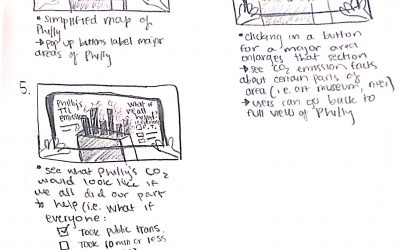 • simplified map of
Philly
→ pop up buttons label major
areas of Philly
• clicking on a button
for a major area
enlarges that section
→ see CO2 emission facts
about certain parts of
area (i.e. art museum, river)
→ users can go back to
full view of Philly
5.
Philly's
emissions
what if
we all
helped?
• see what Philly's CO2
would look like if
we all did our part
to help (i.e. what if
everyone:
Took public trans.
Took 10 min or less